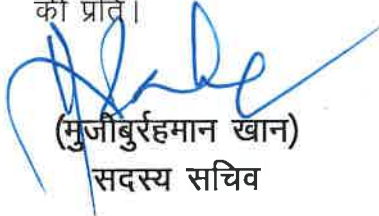 की प्रति।
(मुजीबुर्रहमान खान)
सदस्य सचिव